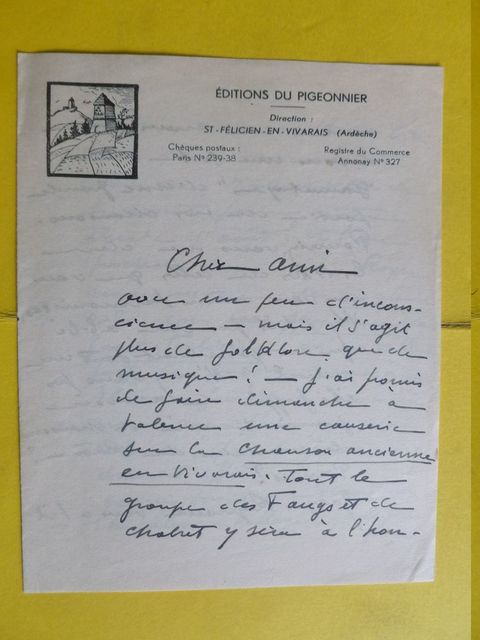 ÉDITIONS DU PIGEONNIER
Direction :
ST-FÉLICIEN-EN-VIVARAIS (Ardèche)
Chèques postaux :
Paris Nº 239-38
Registre du Commerce
Annonay Nº 327
Cher ami
avec un peu d'incons-
cience — mais il s'agit
plus de folklore que de
musique! — j'ai promis
de faire dimanche à
Valence une causerie
sur la chanson ancienne
en Vivarais. Tout le
groupe des Faugs et de
chabret y sera à l'hon-